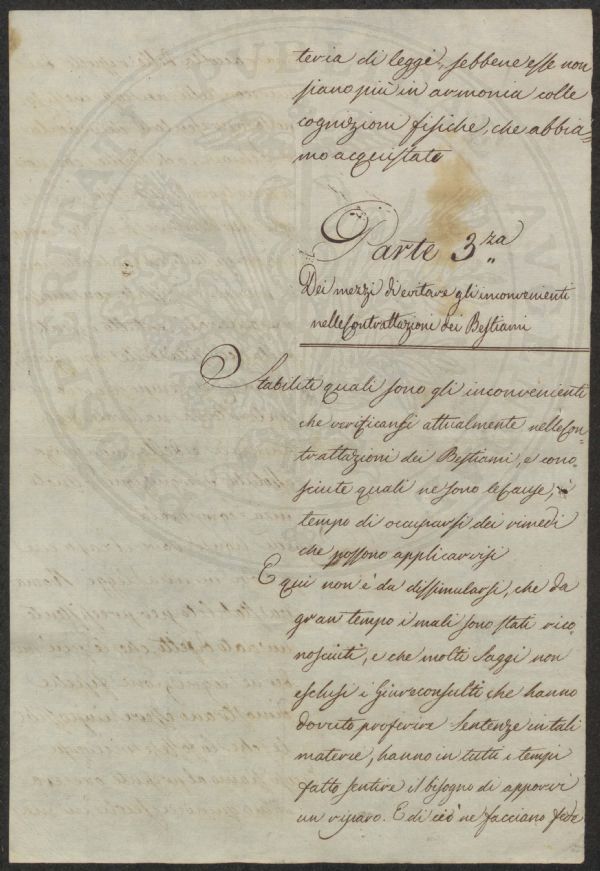 teria di legge, sebbene esse non
siano più in armonia colle
cognizioni fisiche, che abbia=
mo acquistate
Parte 3.za
Dei mezzi di evitare gli inconvenienti
nelle Contrattazioni dei Bestiami
Stabiliti quali sono gli inconvenienti
che verificansi attualmente nelle Con=
trattazioni dei Bestiami, e cono=
sciute quali ne sono le Cause, è
tempo di occuparsi dei rimedi
che possono applicarvisi
E qui non è da dissimularsi, che da
gran tempo i mali sono stati rico=
nosciuti, e che molti Saggi non
esclusi i Giureconsulti che hanno
dovuto proferire Sentenze in tali
materie, hanno in tutti i tempi
fatto sentire il bisogno di apporvi
un riparo. E di ciò ne facciano fede